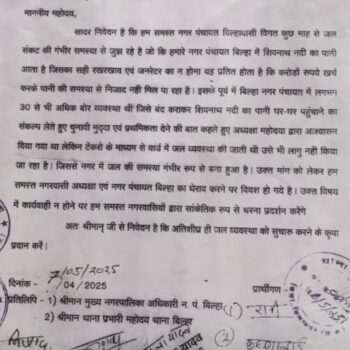 माननीय महोदय,
सादर निवेदन है कि हम समस्त नगर पंचायत बिल्हावासी विगत कुछ माह से जल
संकट की गंभीर समस्या से जुझ रहे है जो कि हमारे नगर पंचायत बिल्हा में शिवनाथ नदी का पानी
आता है जिसका सही रखरखाव एवं जनरेटर का न होना यह प्रतित होता है कि करोडों रुपये खर्च
करके पानी की समस्या से निजाद नही मिल पा रहा है। इसके पूर्व में बिल्हा नगर पंचायत में लगभग
30 से भी अधिक बोर व्यवस्था थीं जिसे बंद कराकर शिवनाथ नदी का पानी घर-घर पहुंचाने का
संकल्प लेते हुए चुनावी मुद्दया एवं प्राथमिकता देने की बात कहते हुए अध्यक्षा महोदया द्वारा आश्वासन
दिया गया था लेकिन टेंकरो के माध्यम से वार्ड में जल व्यवस्था की जाती थी उसे भी लागु नही किया
जा रहा है। जिससे नगर में जल की समस्या गंभीर रुप से बना हुआ है। उक्त मांग को लेकर हम
समस्त नगरवासी अध्यक्षा एवं नगर पंचायत बिल्हा का घेराव करने पर विवश हो गये है। उक्त विषय
में कार्यवाही न होने पर हम समस्त नगरवासीयों द्वारा सांकेतिक रुप से धरना प्रदर्शन करेंगे
अतः श्रीमान् जी से निवेदन है कि अतिशीघ्र ही जल व्यवस्था को सुचारू करने के कृपा
प्रदान करें।
7/05/2025
दिनांक - /04/2025
प्रार्थीगण
प्रतिलिपि - 1) श्रीमान मुख्य नगरपालिका अधिकारी न. पं. बिल्हा
2) श्रीमान थाना प्रभारी महोदय थाना बिल्हा
(1)
(2)
यादव